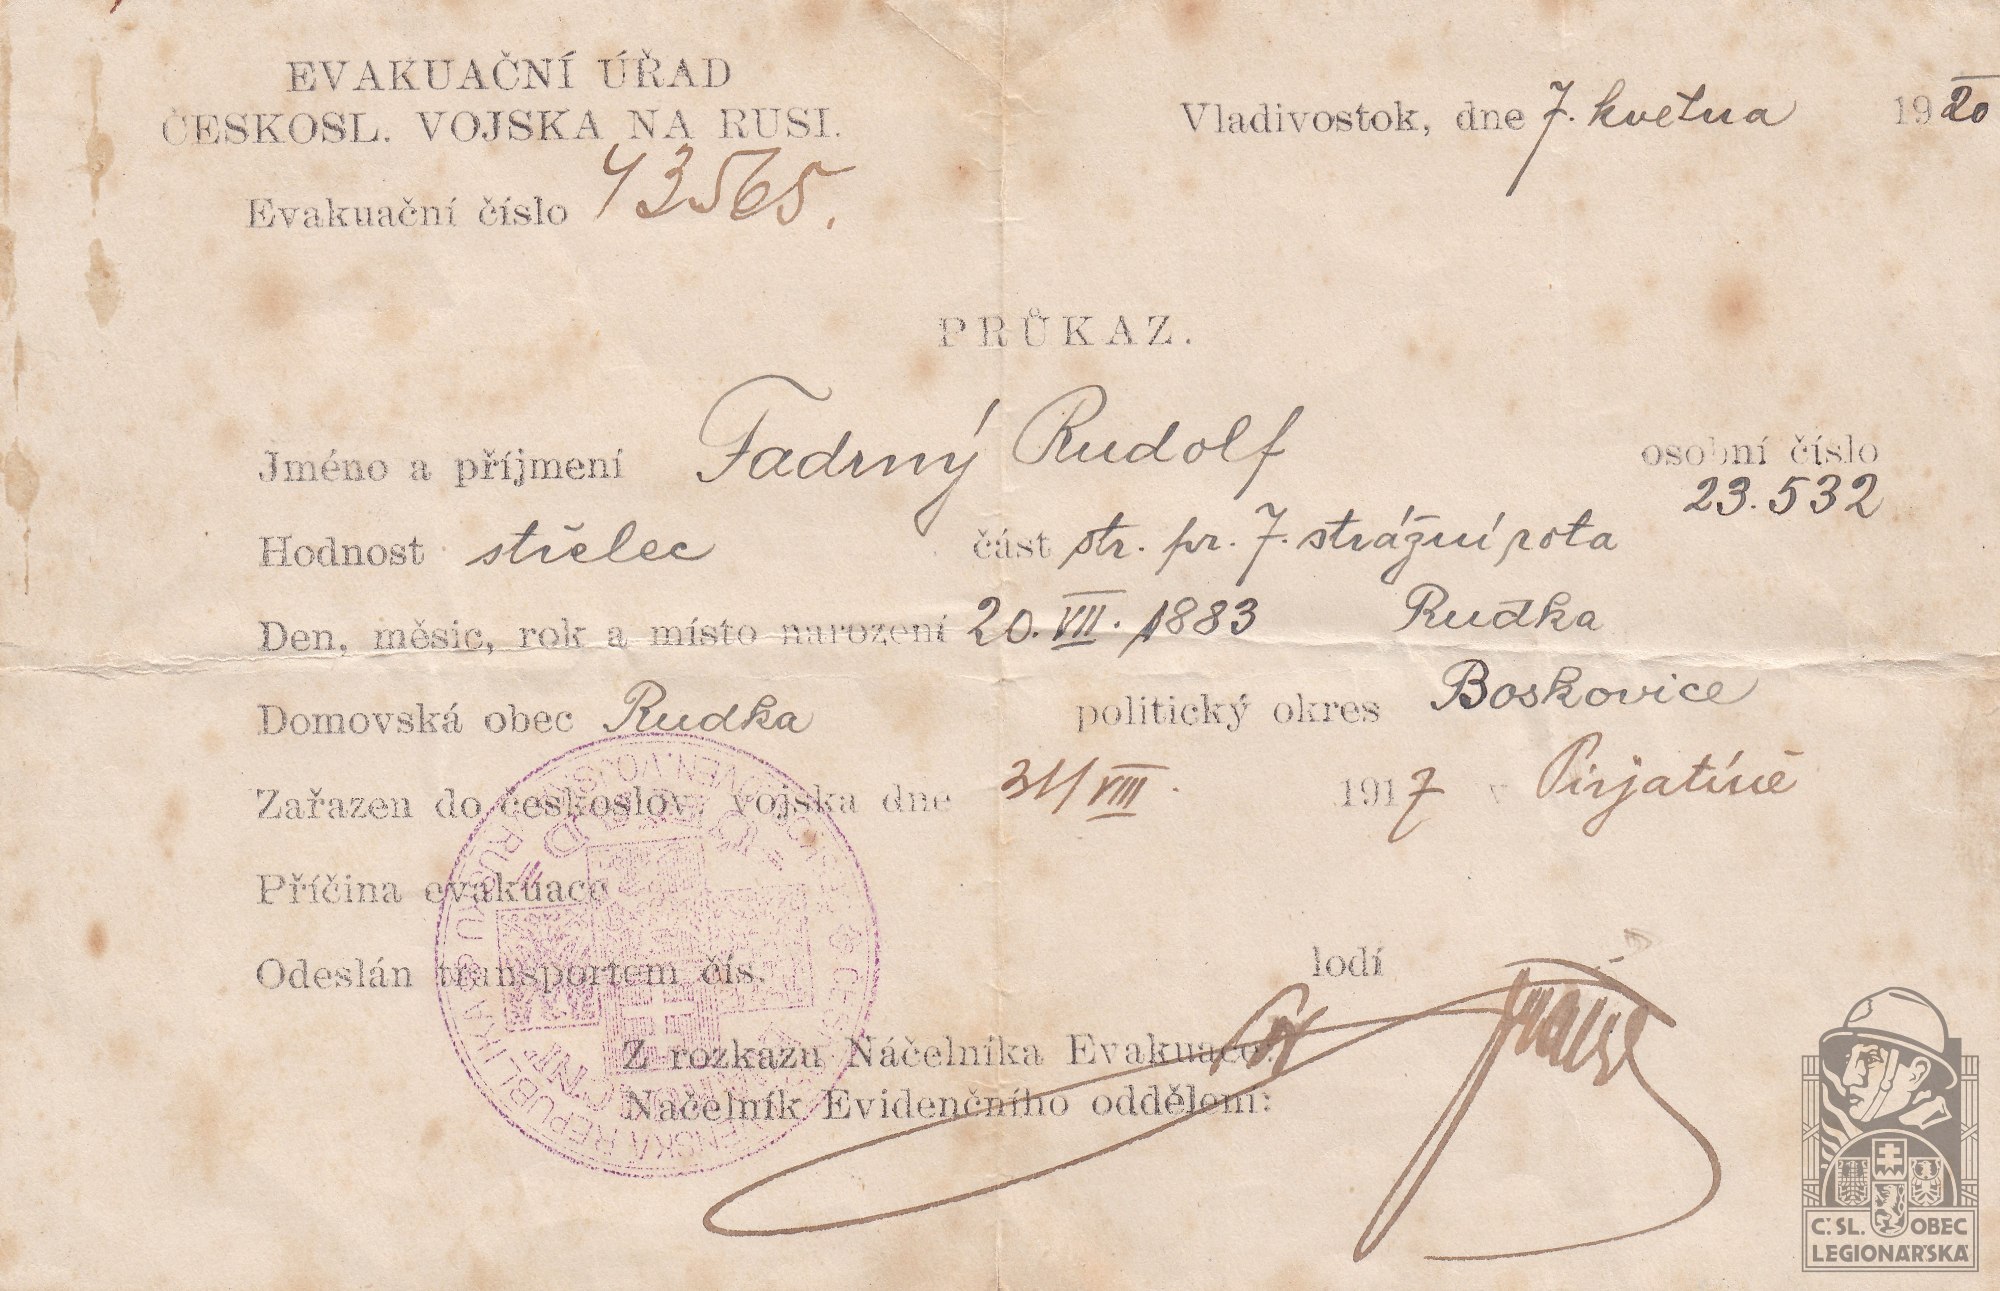 EVAKUAČNÍ ÚŘAD
ČESKOSL. VOJSKA NA RUSI.
Vladivostok, dne 7. května 1920
Evakuační číslo 43565.
PRŮKAZ.
Jméno a příjmení Fadrný Rudolf osobní číslo
23.532
Hodnost střelec část str. pr. 7. strážní rota
Den, měsíc, rok a místo narození 20. VII. 1883 Rudka
Domovská obec Rudka politický okres Boskovice
Zařazen do českoslov. vojska dne 31/VIII. 1917 v Pirjatíně
Příčina evakuace
Odeslán transportem čís. lodí
Z rozkazu Náčelníka Evakuace:
Náčelník Evidenčního oddělení:
Č.SL. OBEC
LEGIONÁŘSKÁ